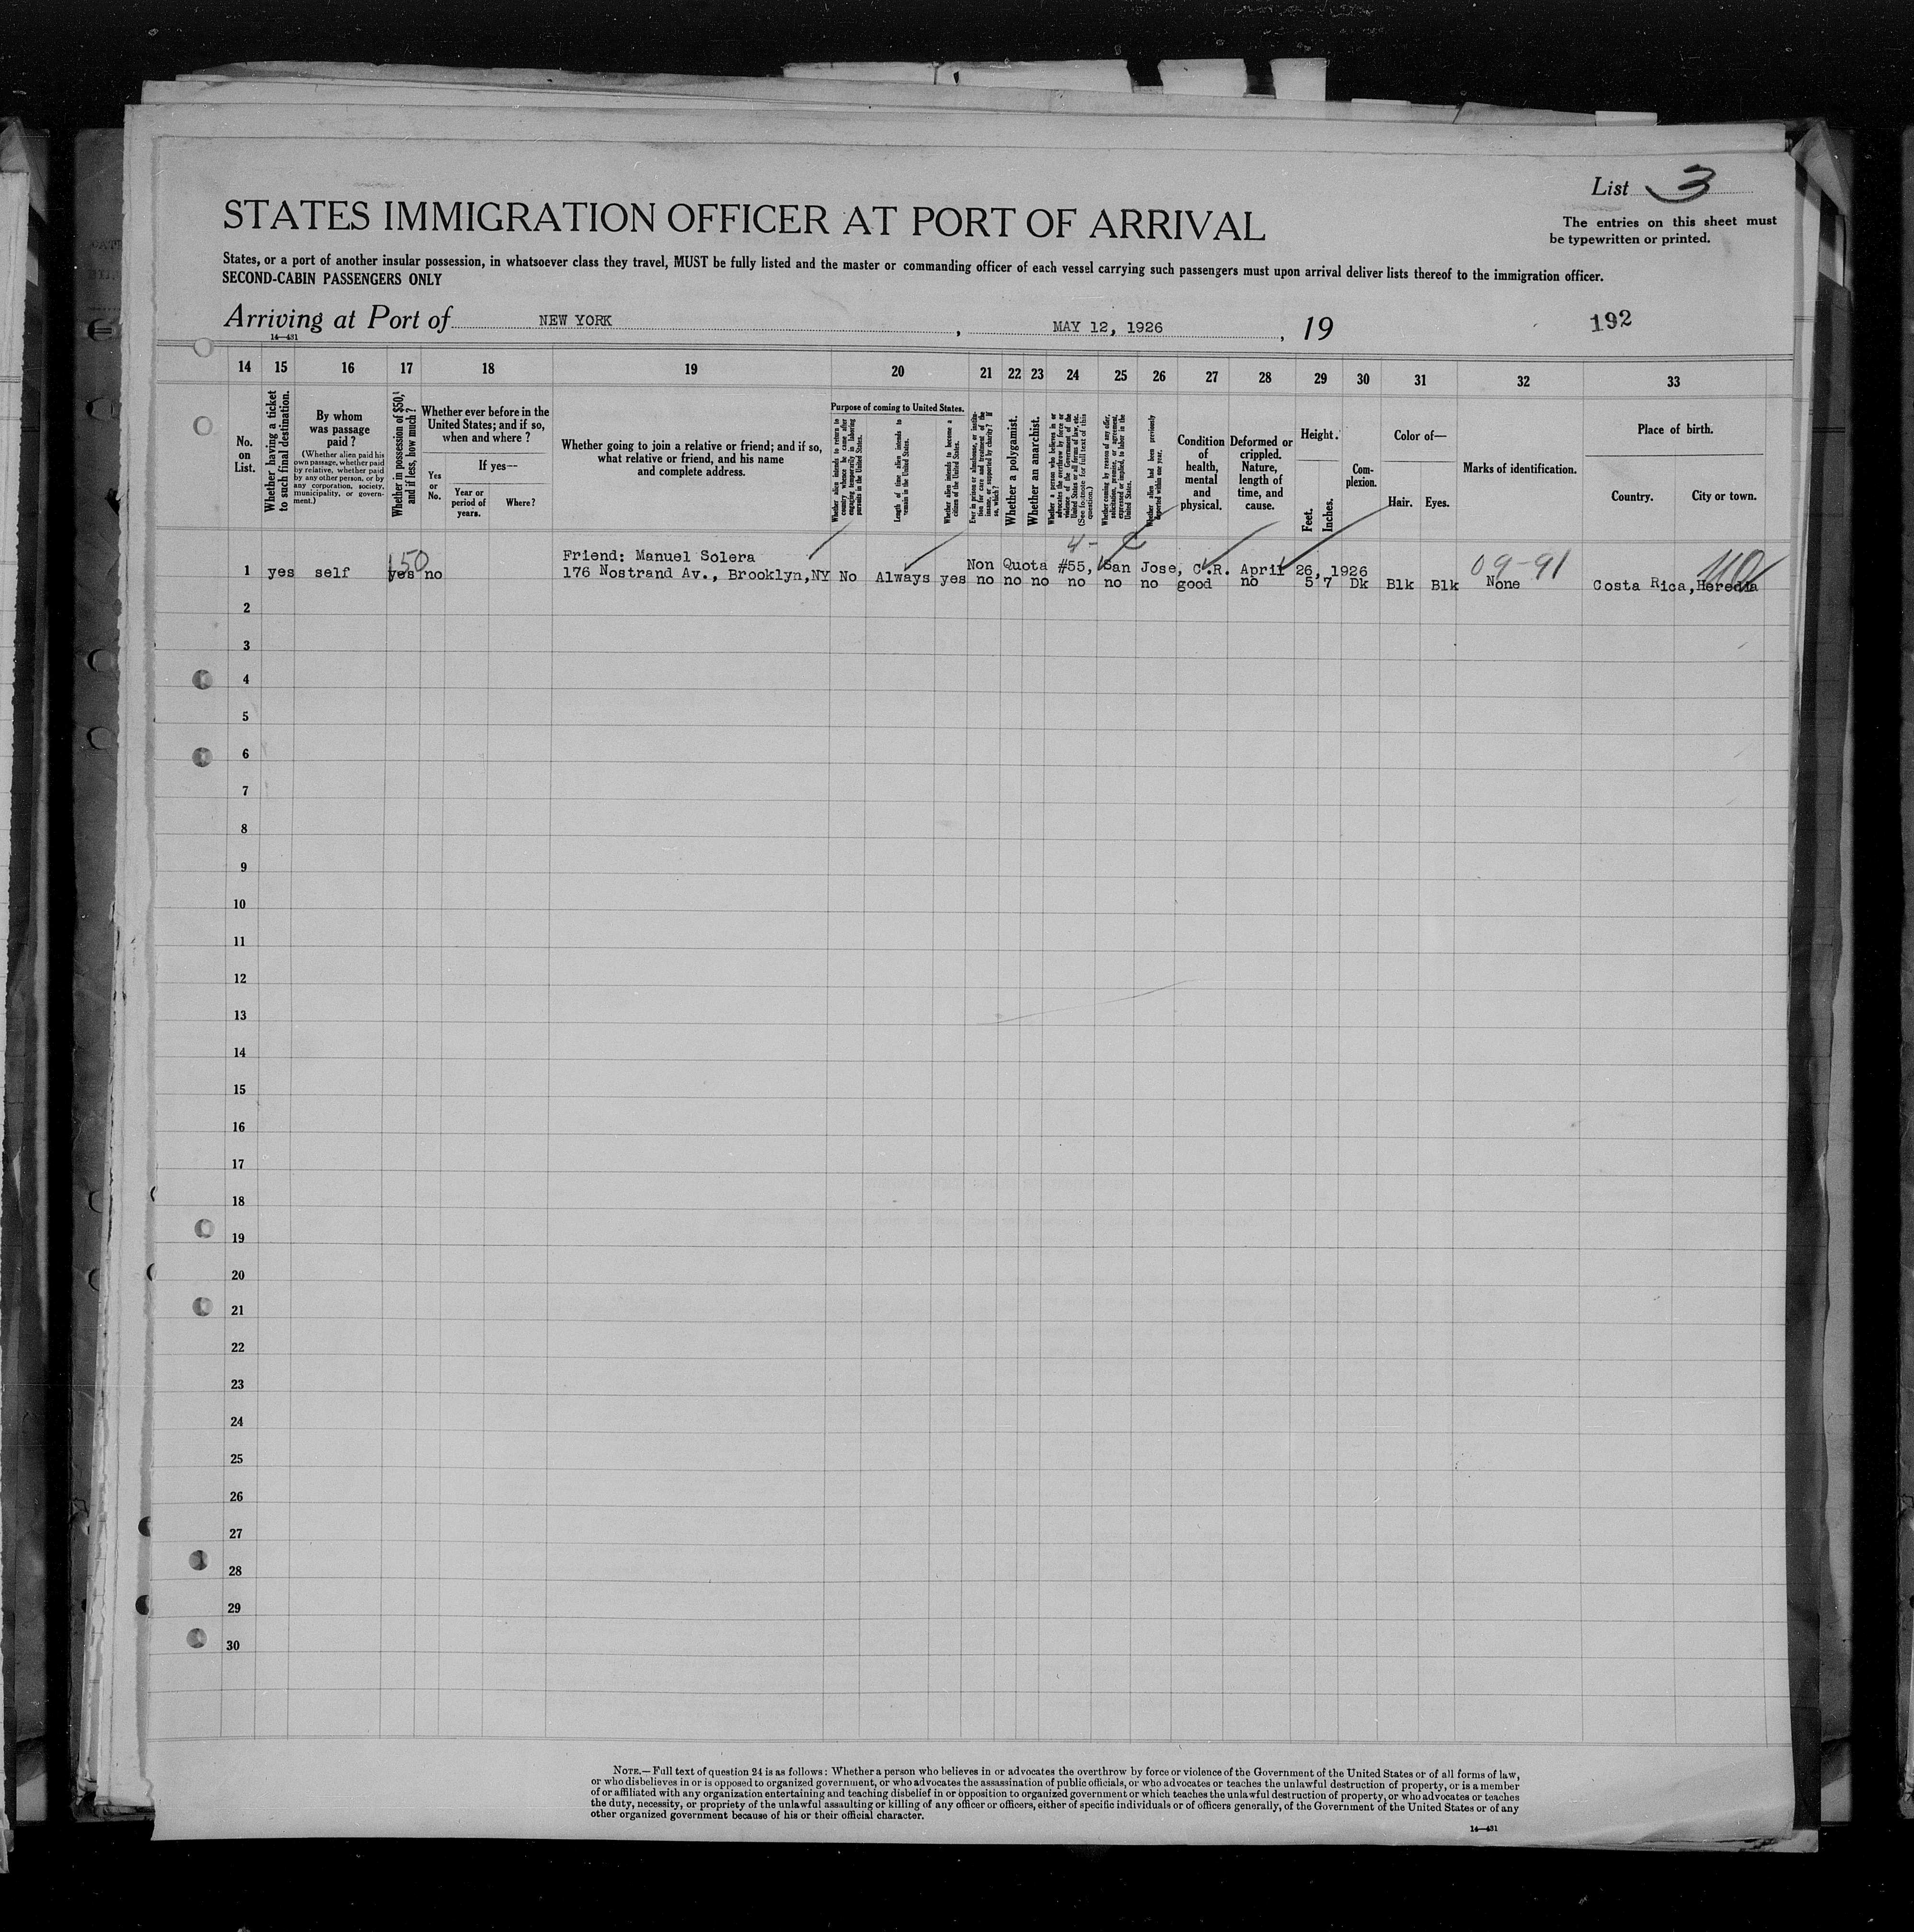 List 3
STATES IMMIGRATION OFFICER AT PORT OF ARRIVAL
The entries on this sheet must
be typewritten or printed.
States, or a port of another insular possession, in whatsoever class they travel, MUST be fully listed and the master or commanding officer of each vessel carrying such passengers must upon arrival deliver lists thereof to the immigration officer.
SECOND-CABIN PASSENGERS ONLY
Arriving at Port of NEW YORK, MAY 12, 1926, 19
192
14—431
14 15 16 17 18 19 20 21 22 23 24 25 26 27 28 29 30 31 32 33
No. on List.
Whether having a ticket to such final destination.
By whom was passage paid?
(Whether alien paid his own passage, whether paid by relative, whether paid by any other person, or by any corporation, society, municipality, or government.)
Whether in possession of $50, and if less, how much?
Whether ever before in the United States; and if so, when and where?
Yes or No.
If yes—
Year or period of years.
Where?
Whether going to join a relative or friend; and if so, what relative or friend, and his name and complete address.
Purpose of coming to United States.
Whether alien intends to return to country whence he came after engaging temporarily in laboring pursuits in the United States.
Length of time alien intends to remain in the United States.
Whether alien intends to become a citizen of the United States.
Ever in prison or almshouse, or institution for care and treatment of the insane, or supported by charity? If so, which?
Whether a polygamist.
Whether an anarchist.
Whether a person who believes in or advocates the overthrow by force or violence of the Government of the United States or all forms of law, etc. (See footnote for full text of this question.)
Whether coming by reason of any offer, solicitation, promise, or agreement, expressed or implied, to labor in the United States.
Whether alien had been previously deported within one year.
Condition of health, mental and physical.
Deformed or crippled. Nature, length of time, and cause.
Height.
Feet.
Inches.
Complexion.
Color of—
Hair.
Eyes.
Marks of identification.
Place of birth.
Country.
City or town.
4-
150
Friend: Manuel Solera
Non Quota #55, San Jose, C.R. April 26, 1926
09-91
1 yes self yes no 176 Nostrand Av., Brooklyn, NY No Always yes no no no no no no good no 5 7 Dk Blk Blk None Costa Rica, Heredia
2
3
4
5
6
7
8
9
10
11
12
13
14
15
16
17
18
19
20
21
22
23
24
25
26
27
28
29
30
NOTE.—Full text of question 24 is as follows: Whether a person who believes in or advocates the overthrow by force or violence of the Government of the United States or of all forms of law,
or who disbelieves in or is opposed to organized government, or who advocates the assassination of public officials, or who advocates or teaches the unlawful destruction of property, or is a member
of or affiliated with any organization entertaining and teaching disbelief in or opposition to organized government or which teaches the unlawful destruction of property, or who advocates or teaches
the duty, necessity, or propriety of the unlawful assaulting or killing of any officer or officers, either of specific individuals or of officers generally, of the Government of the United States or of any
other organized government because of his or their official character.
14—431